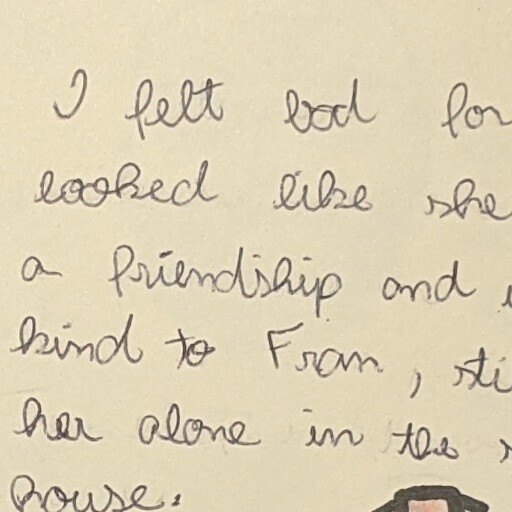 I felt bad for
looked like she
a friendship and
kind to Fran, sti
her alone in the
house.